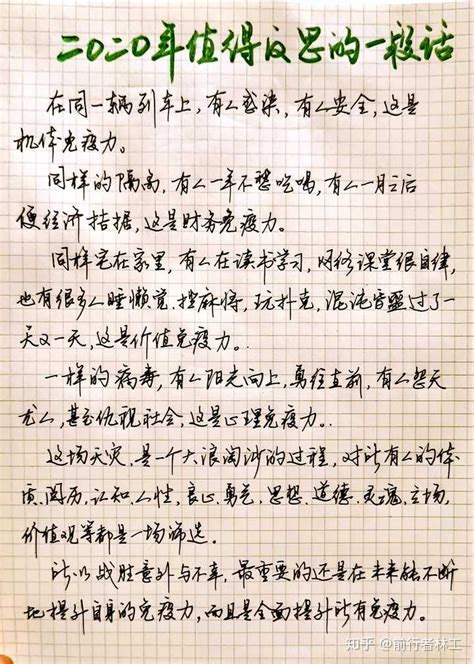 二〇二〇年值得反思的一段话
在同一辆列车上，有人感染，有人安全，这是
机体免疫力。
同样的隔离，有人一年不愁吃喝，有人一月之后
便经济拮据，这是财务免疫力。
同样宅在家里，有人在读书学习，网络课堂很自律，
也有很多人睡懒觉、搓麻将，玩扑克，混沌官噩过了一
天又一天，这是价值免疫力。
一样的病毒，有人阳光向上，勇往直前，有人怨天
尤人，甚至仇视社会，这是心理免疫力。
这场天灾，是一个大浪淘沙的过程，对所有人的体
质、阅历、认知、人性，良心、勇气、思想、道德、灵魂、立场，
价值观等都是一场筛选。
所以战胜意外与不幸，最重要的还是在未来能不断
地提升自身的免疫力，而且是全面提升所有免疫力。
知乎 @前行者林工